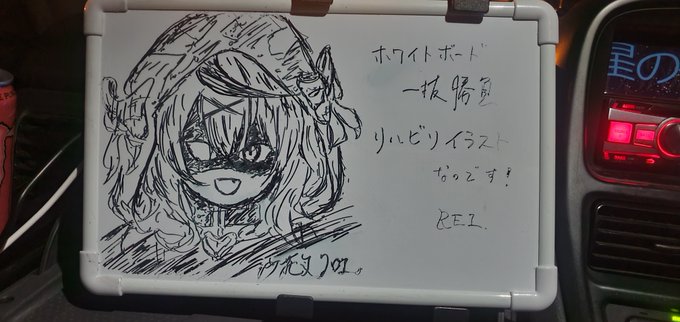 ホワイトボード
一抜勝負
リハビリイラスト
なのです!
REI.
星の